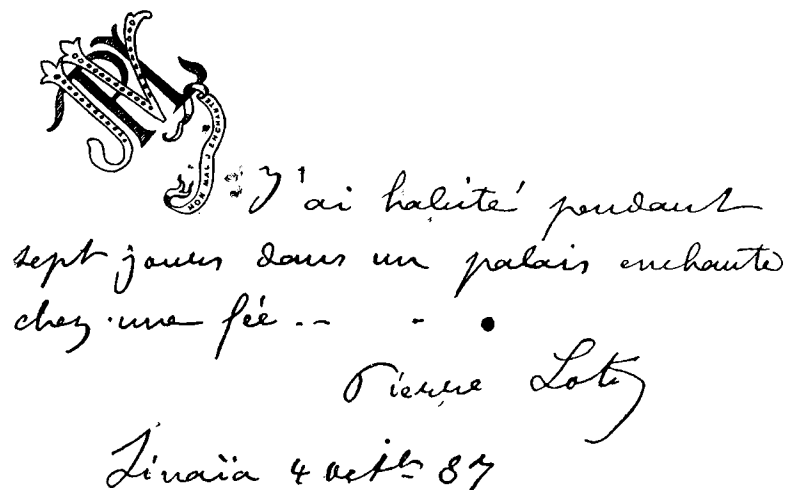 MON MAL J ENCHANTE
J'ai habité pendant
sept jours dans un palais enchanté
chez une fée .. - .
Pierre Loti
Sinaïa 4 octbr 87